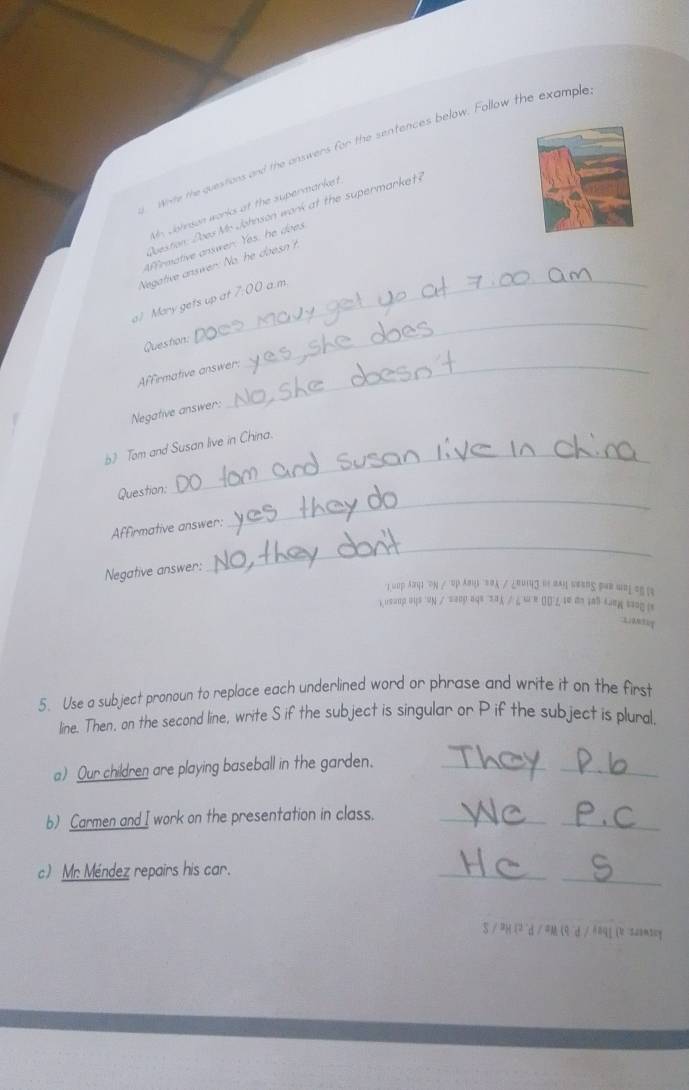 4. Write the questions and the answers for the sentences below. Follow the example:
Mr. Johnson works at the supermarket.
Question: Does Mr. Johnson work at the supermarket?
Affirmative answer: Yes, he does.
Negative answer: No, he doesn't.
a) Mary gets up at 7:00 a.m.
Question: Does Mavy get yo at 7:00 am
Affirmative answer: yes, she does
Negative answer: No, she doesn't
b) Tom and Susan live in China.
Question: DO tom and Susan live in china
Affirmative answer: yes they do
Negative answer: NO, they don't
Answers:
a) Does Mary get up at 7:00 a.m.? / Yes, she does. / No, she doesn't.
b) Do Tom and Susan live in China? / Yes, they do. / No, they don't.
5. Use a subject pronoun to replace each underlined word or phrase and write it on the first
line. Then, on the second line, write S if the subject is singular or P if the subject is plural.
a) Our children are playing baseball in the garden. They P.b
b) Carmen and I work on the presentation in class. We P.C
c) Mr. Méndez repairs his car. He S
Answers: a) They / P b) We / P c) He / S